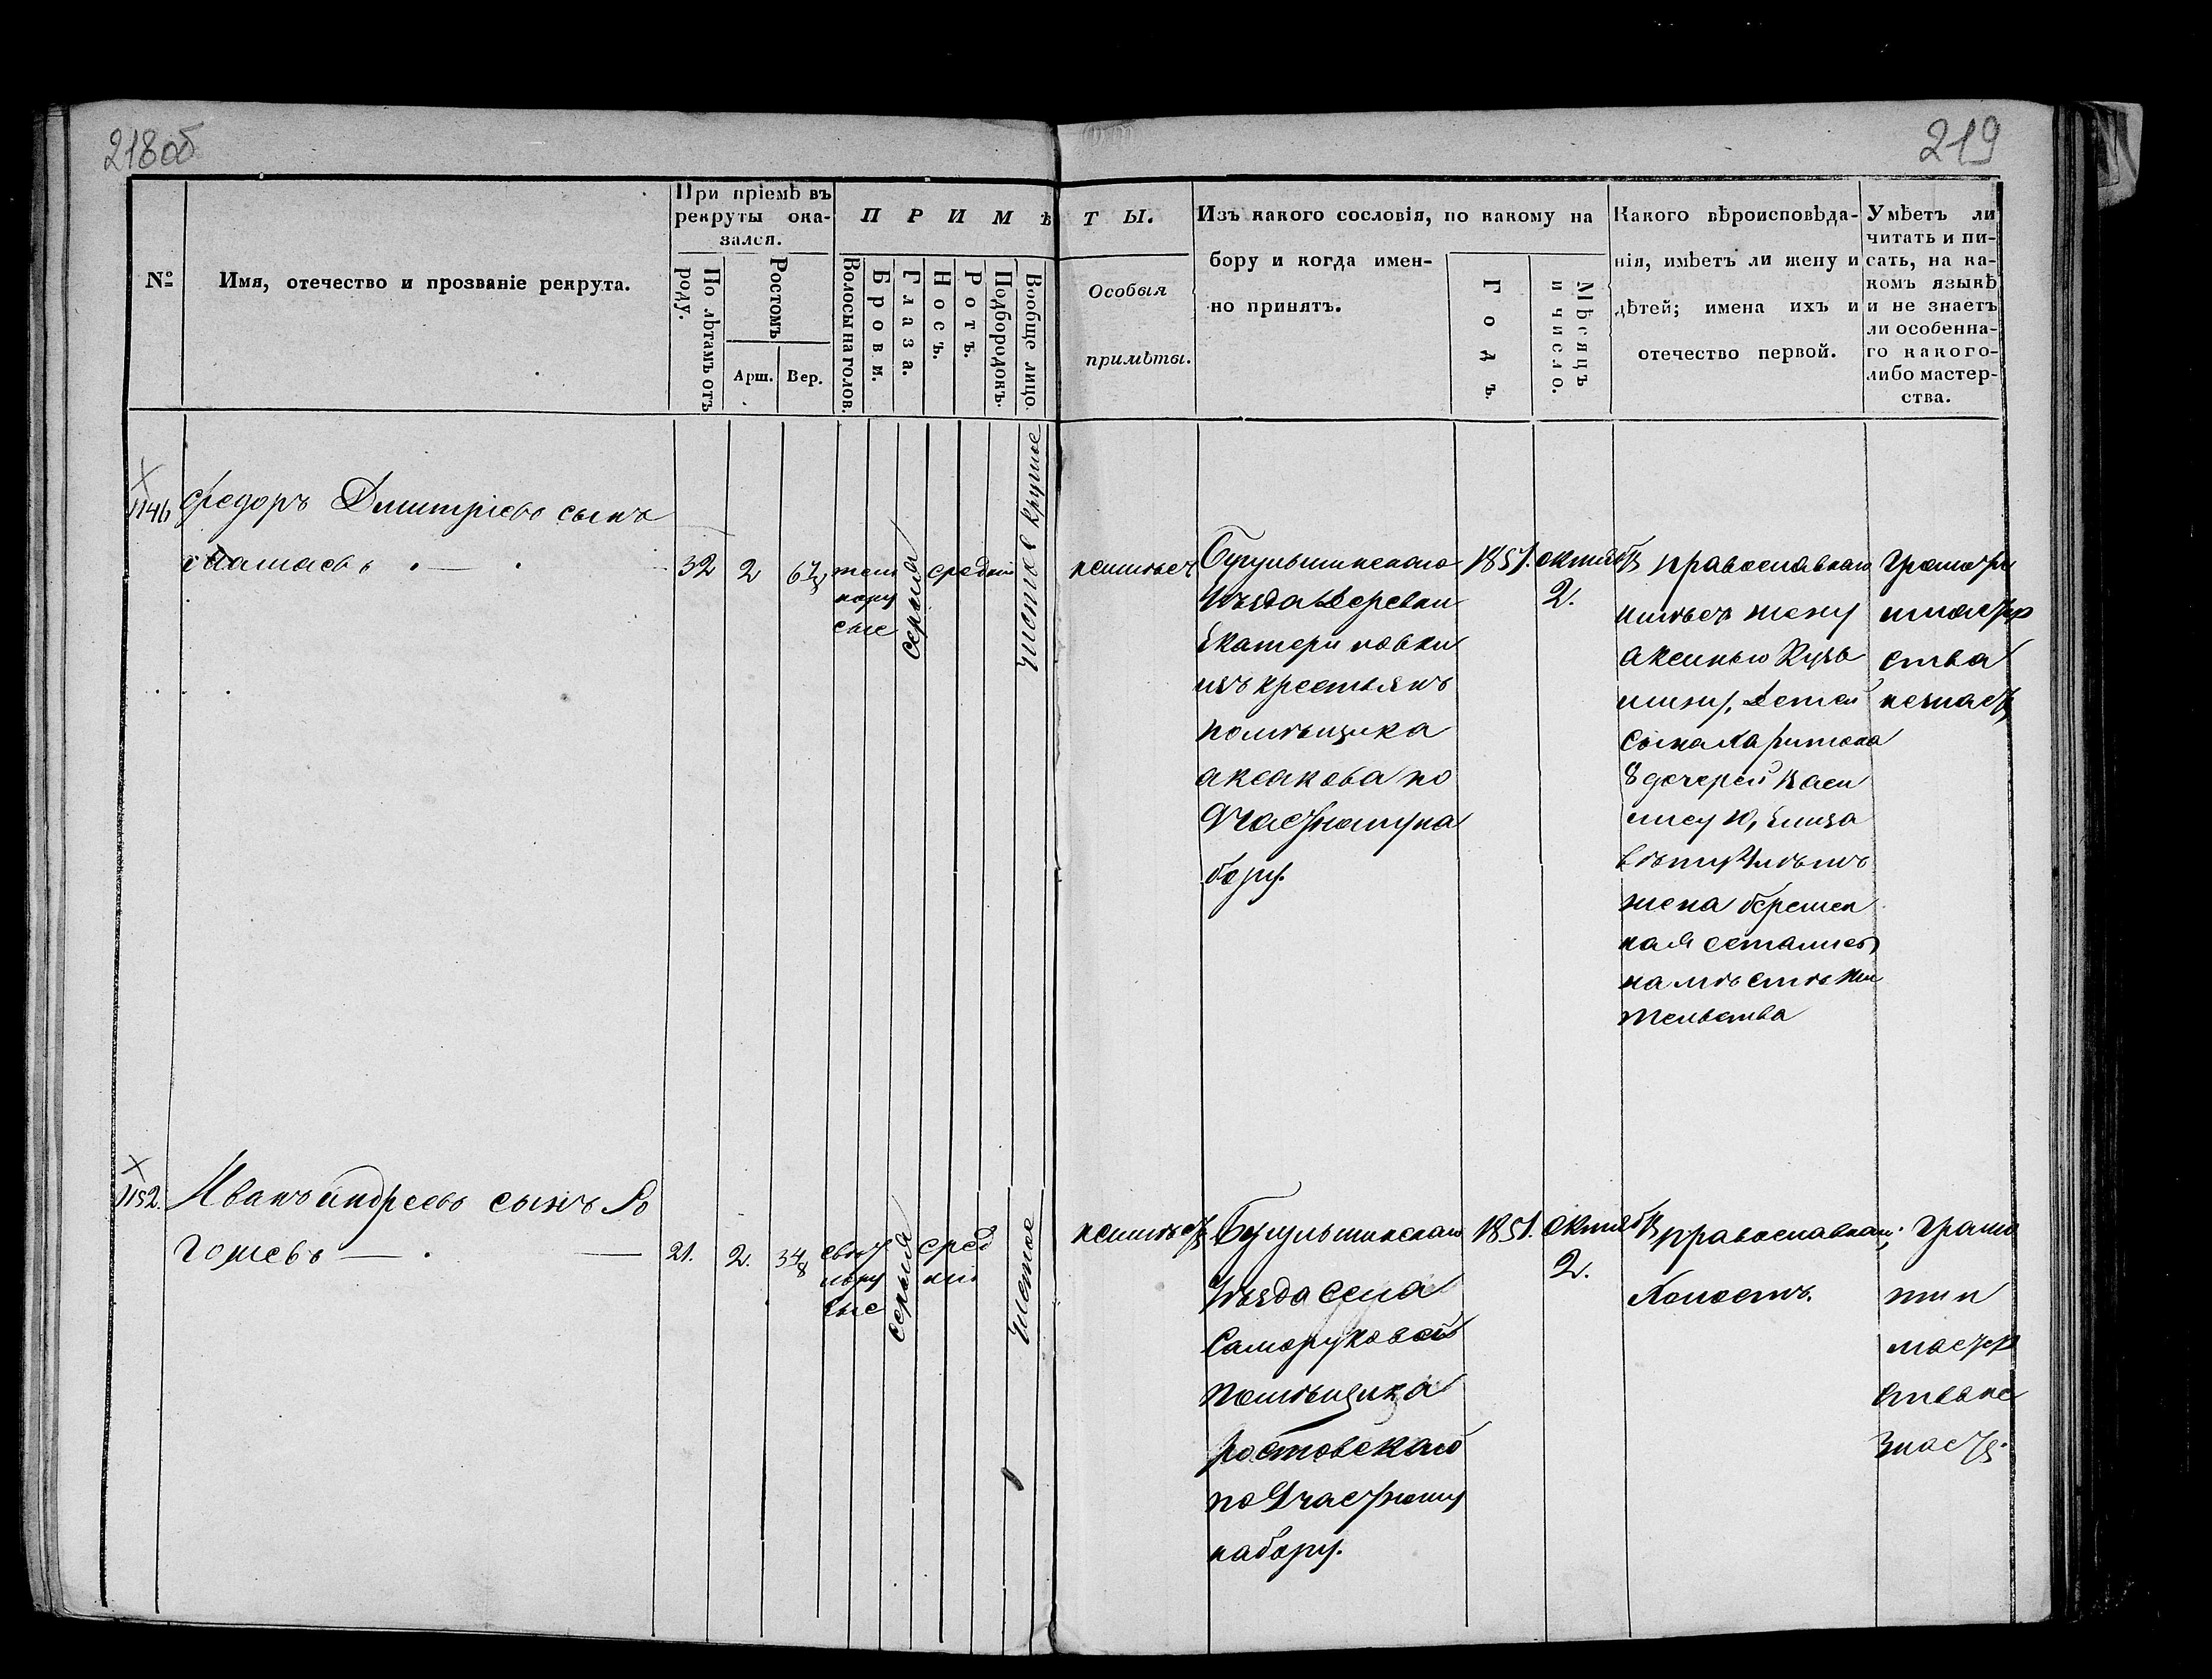 218об
219
№
Имя, отечество и прозваніе рекрута.
При пріемѣ въ
рекруты ока-
зался.
По лѣтамъ отъ
роду.
Ростомъ
Арш. Вер.
ПРИМѢТЫ.
Волосы на голов.
Брови.
Глаза.
Носъ.
Ротъ.
Подбородокъ.
Вообще лицо.
Особыя
примѣты.
Изъ какого сословія, по какому на
бору и когда имен-
но принятъ.
Годъ.
Мѣсяцъ
и число.
Какого вѣроисповѣда-
нія, имѣетъ ли жену и
дѣтей; имена ихъ и
отечество первой.
Умѣетъ ли
читать и пи-
сать, на ка-
комъ языкѣ
и не знаетъ
ли особенна-
го какого-
либо мастер-
ства.
1146
Федоръ Дмитріевъ сынъ
32
2
темн
нору
сые
серыя
средній
чистое круглое
неимѣет
Бугульминскаго
Уѣзда Деревни
Екатериновки
изъ крестьянъ
помѣщика
аксакова по
Участному на
бору.
1851.
октяб
2.
православнаго
имѣетъ жену
аксинью Кузь
мину, детей
сына харитона
дочерей Васи
лису Елиза
вѣту
жена беремен
ная остались
на мѣстѣ жи
тельства
грамоты
имастер
ства
незнаетъ
1152.
Иванъ андреевъ сынъ Ро
гожевъ
21.
2.
34/8
свѣт
лору
сые
серыя
сред
ній
чистое
неимѣетъ
Бугульминскаго
Уѣзда села
Самаруковой
помѣщика
ростовскаго
по Участному
набору.
1851.
октяб
2.
православнаго;
Холостъ.
грамо
ти и
мастер
ства не
знаетъ.